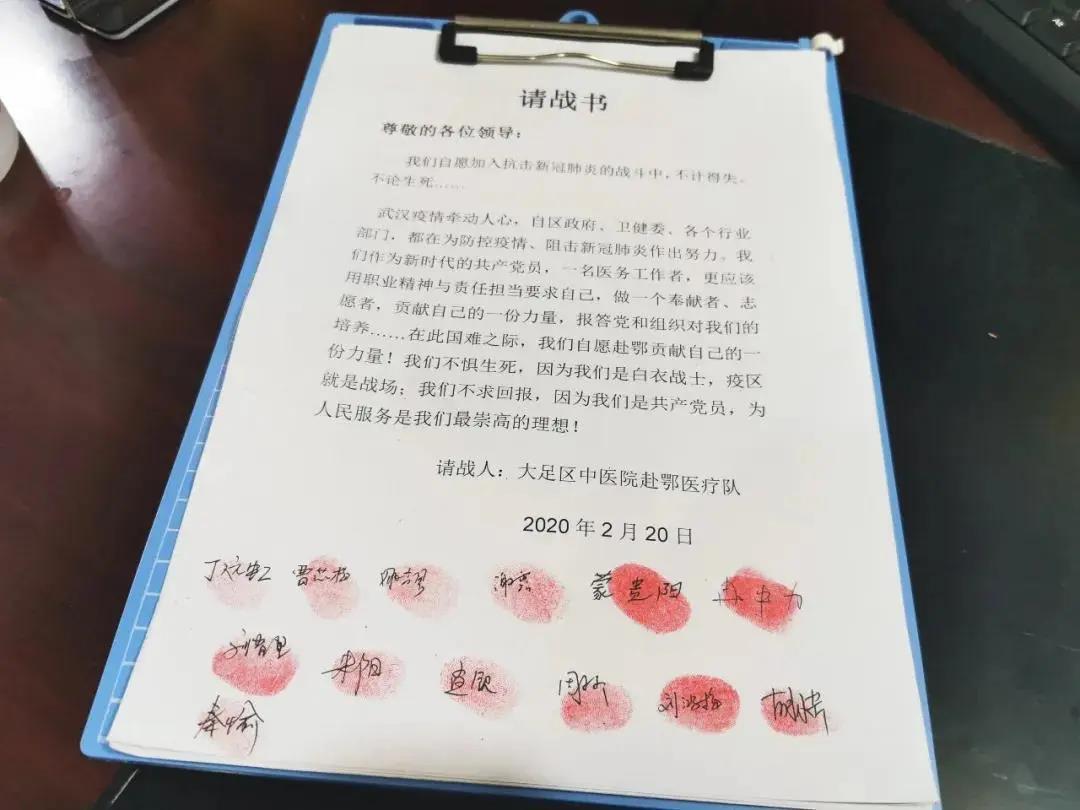 请战书
尊敬的各位领导：
我们自愿加入抗击新冠肺炎的战斗中，不计得失、
不论生死……
武汉疫情牵动人心，自区政府、卫健委、各个行业
部门，都在为防控疫情、阻击新冠肺炎作出努力。我
们作为新时代的共产党员，一名医务工作者，更应该
用职业精神与责任担当要求自己，做一个奉献者、志
愿者，贡献自己的一份力量，报答党和组织对我们的
培养……在此国难之际，我们自愿赴鄂贡献自己的一
份力量！我们不惧生死，因为我们是白衣战士，疫区
就是战场；我们不求回报，因为我们是共产党员，为
人民服务是我们最崇高的理想！
请战人：大足区中医院赴鄂医疗队
2020年2月20日
蒙贵阳
朱阳
刘鸿梅
秦愉